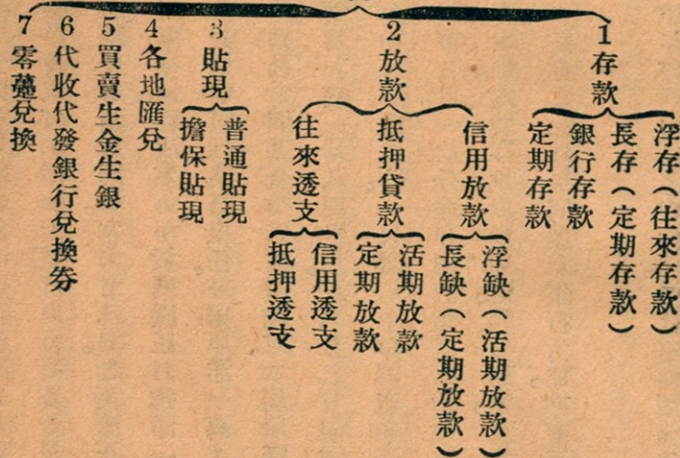 1存款
浮存（往來存款）
長存（定期存款）
銀行存款
定期存款
2放款
信用放款
浮缺（活期放款）
長缺（定期放款）
抵押貸款
活期放款
定期放款
往來透支
信用透支
抵押透支
3貼現
普通貼現
擔保貼現
4各地匯兌
5買賣生金生銀
6代收代發銀行兌換券
7零躉兌換